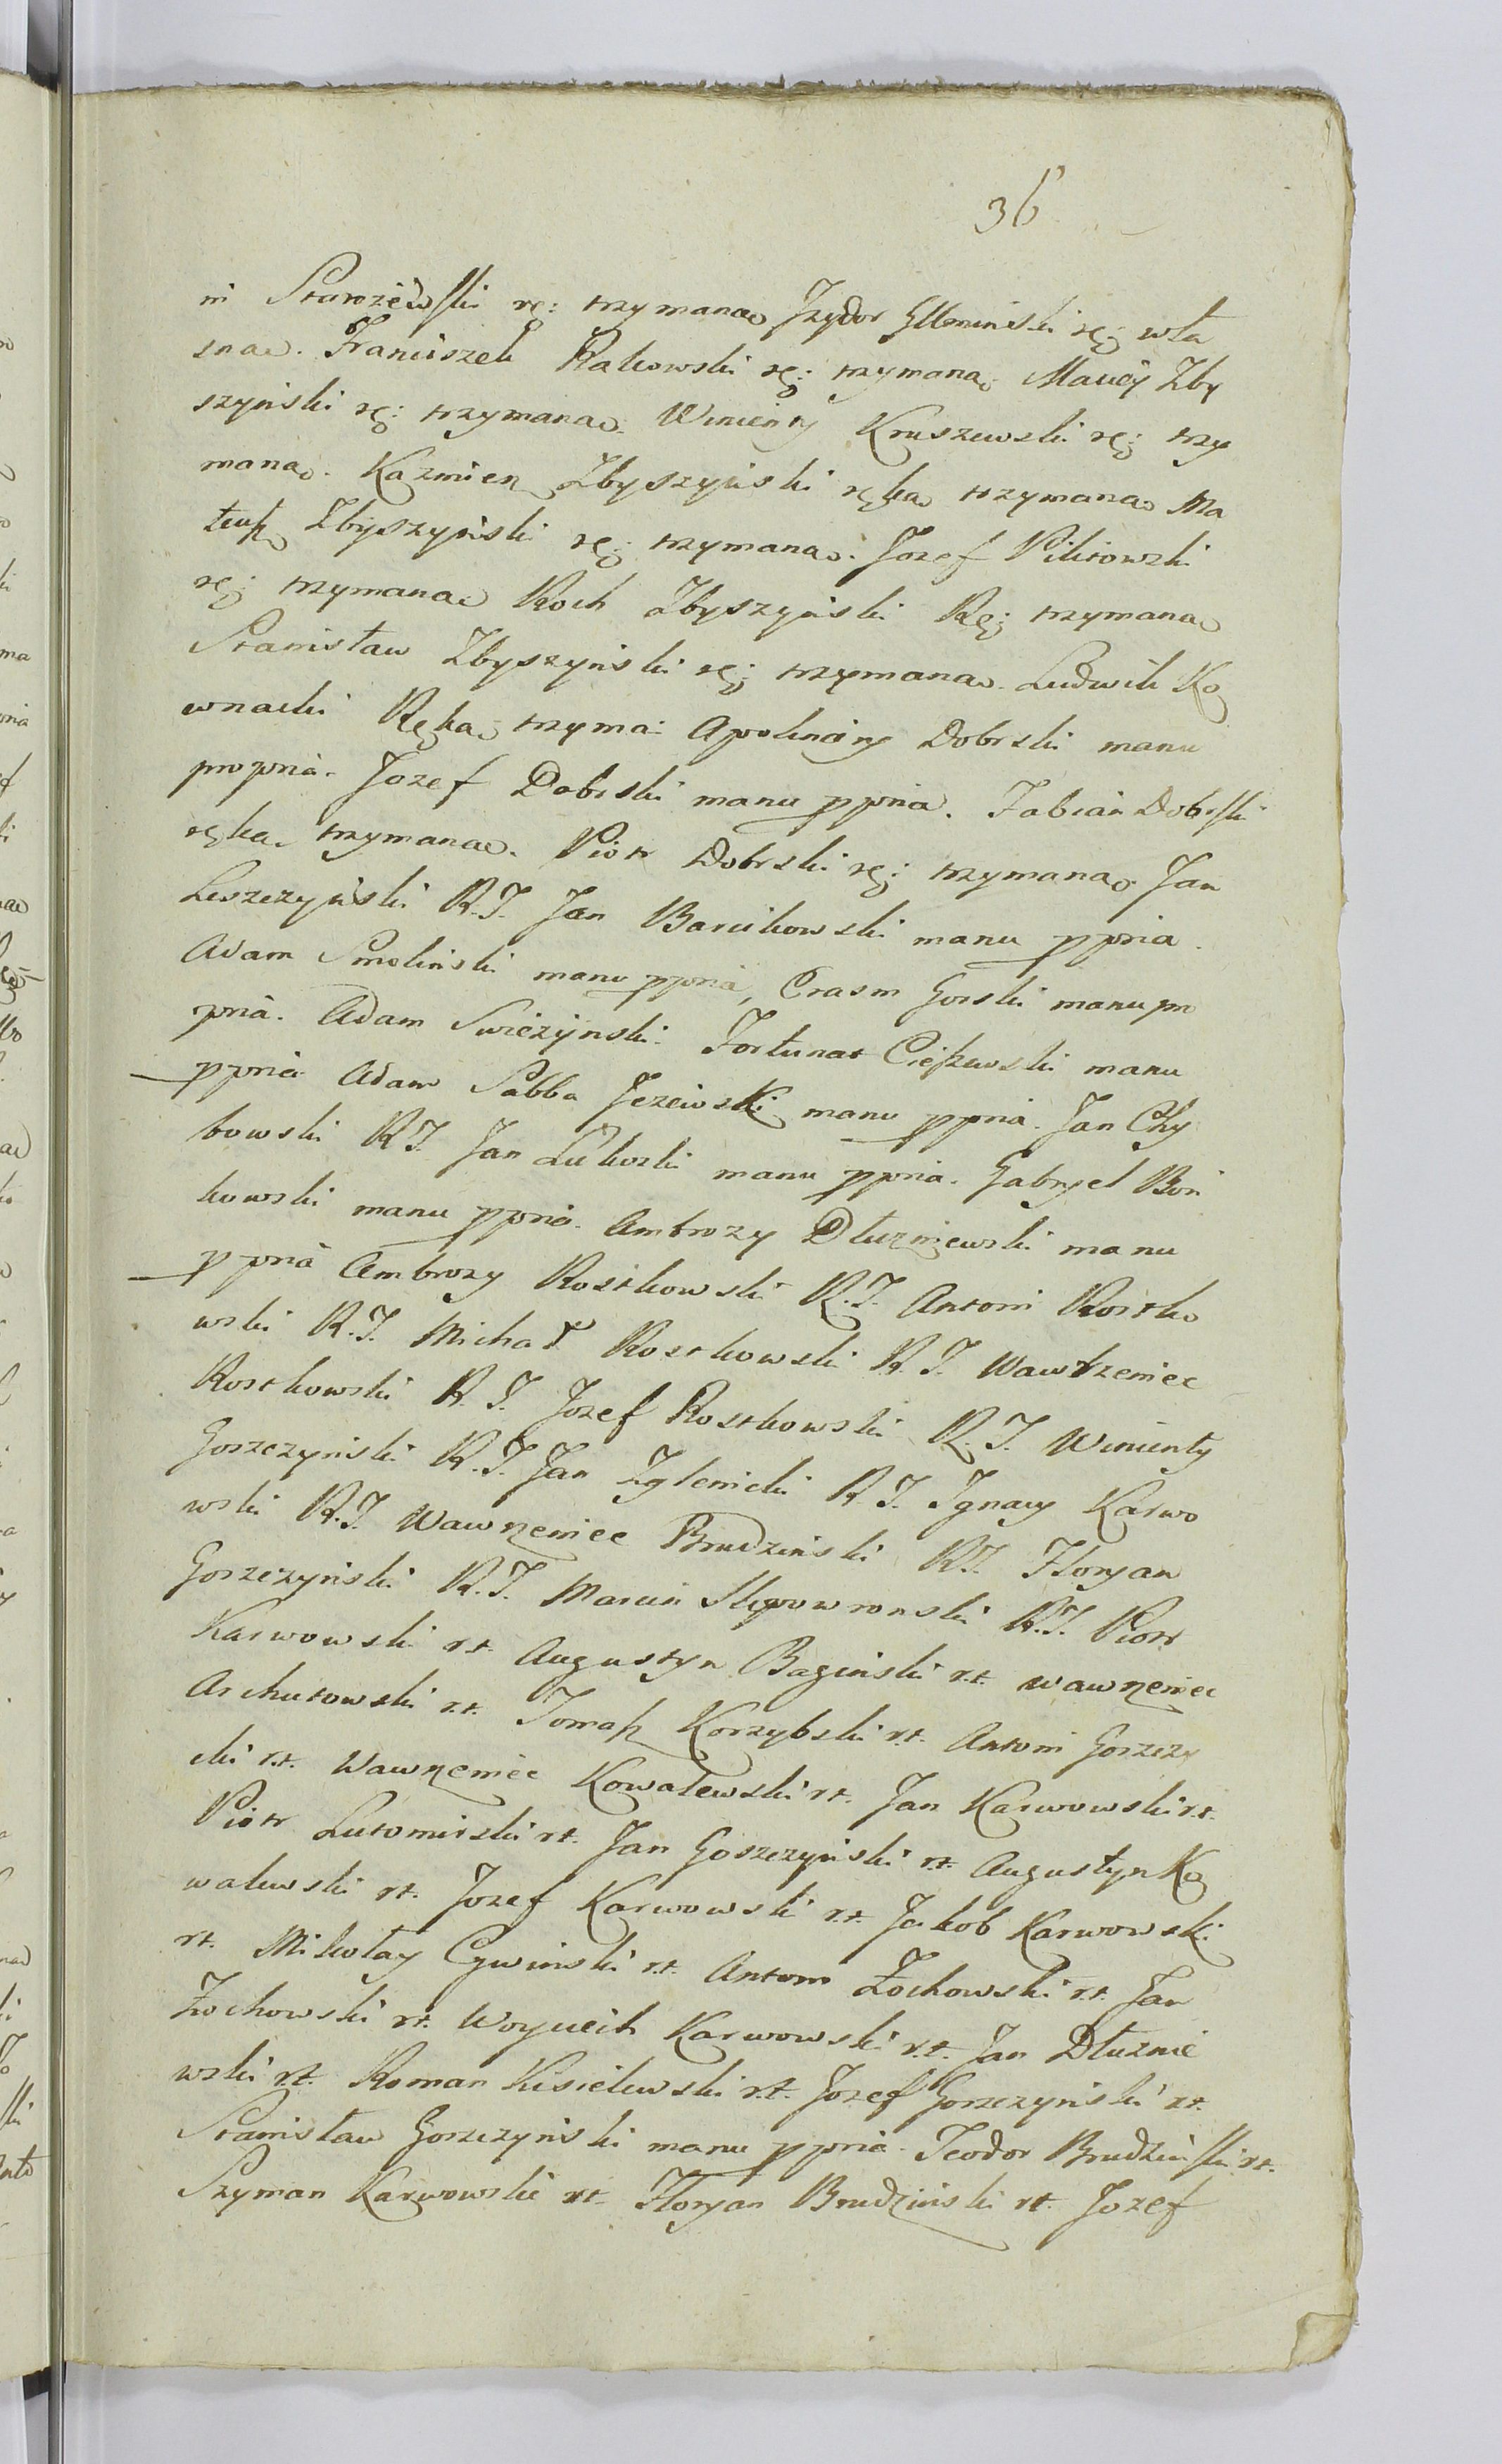 36
ni Starożewski rę: trzymaną Jzydor Glbminski rę: wła
sną. Franciszek Rakowski rę: trzymaną Maciey Zby
szyński rę: trzymaną. Wincenty Kruszewski rę: trzy
maną. Kazmierz Zbyszyński ręką trzymaną Ma
teusz Zbyszyński rę: trzymaną. Jozef Pilitowski
rę: trzymaną Roch Zbyszyński Rę: trzymaną
Stanisław Zbyszyński rę: trzymaną. Ludwik Ko
wnacki Ręką trzyma: Apolinary Dobrski manu
propria. Jozef Dobrski manu ppria. Fabian Dobrski
ręką trzymaną. Piotr Dobrski rę: trzymaną Jan
Leszczyński R.T. Jan Barcikowski manu ppria.
Adam Smoliński manu ppria, Erasm Gorski manu pro
pria. Adam Swieżyński. Fortunat Cieszewski manu
ppria Adam Sabba Jeżewski manu ppria. Jan Chy
bowski R.T. Jan Lukoski manu ppria. Gabryel Boń
kowski manu ppria. Ambroży Dłużniewski manu
ppria Ambroży Rostkowski R.T. Antoni Rostko
wski R.T. Michał Rostkowski R.T. Wawrzeniec
Rostkowski R.T. Jozef Rostkowski R.T. Wincenty
Gorzczyński R.T. Jan Zglenicki R.T. Jgnacy Karwo
wski R.T. Wawrzeniec Brudziński R.T. Floryan
Gorzczyński R.T. Marcin Slepowronski R.T. Piotr
Karwowski rt. Augustyn Bagiński r.t. Wawrzeniec
Archutowski r.t. Tomasz Korzybski r.t. Antoni Gorzczy
cki r.t. Wawrzeniec Kowalewski rt. Jan Karwowski r.t.
Piotr Lutomirski rt. Jan Goszczyński rt. Augustyn Ko
walewski rt. Jozef Karwowski r.t. Jakob Karwowski
rt. Mikołay Cywiński r.t. Antoni Żochowski r.t. Jan
Żochowski rt. Woyciech Karwowski r.t. Jan Dłużnie
wski rt. Roman Kisielewski r.t. Jozef Gorzczyński r.t.
Stanisław Gorzczyński manu ppria. Teodor Brudziński r.t.
Szyman Karwowski rt. Floryan Brudziński rt. Jozef